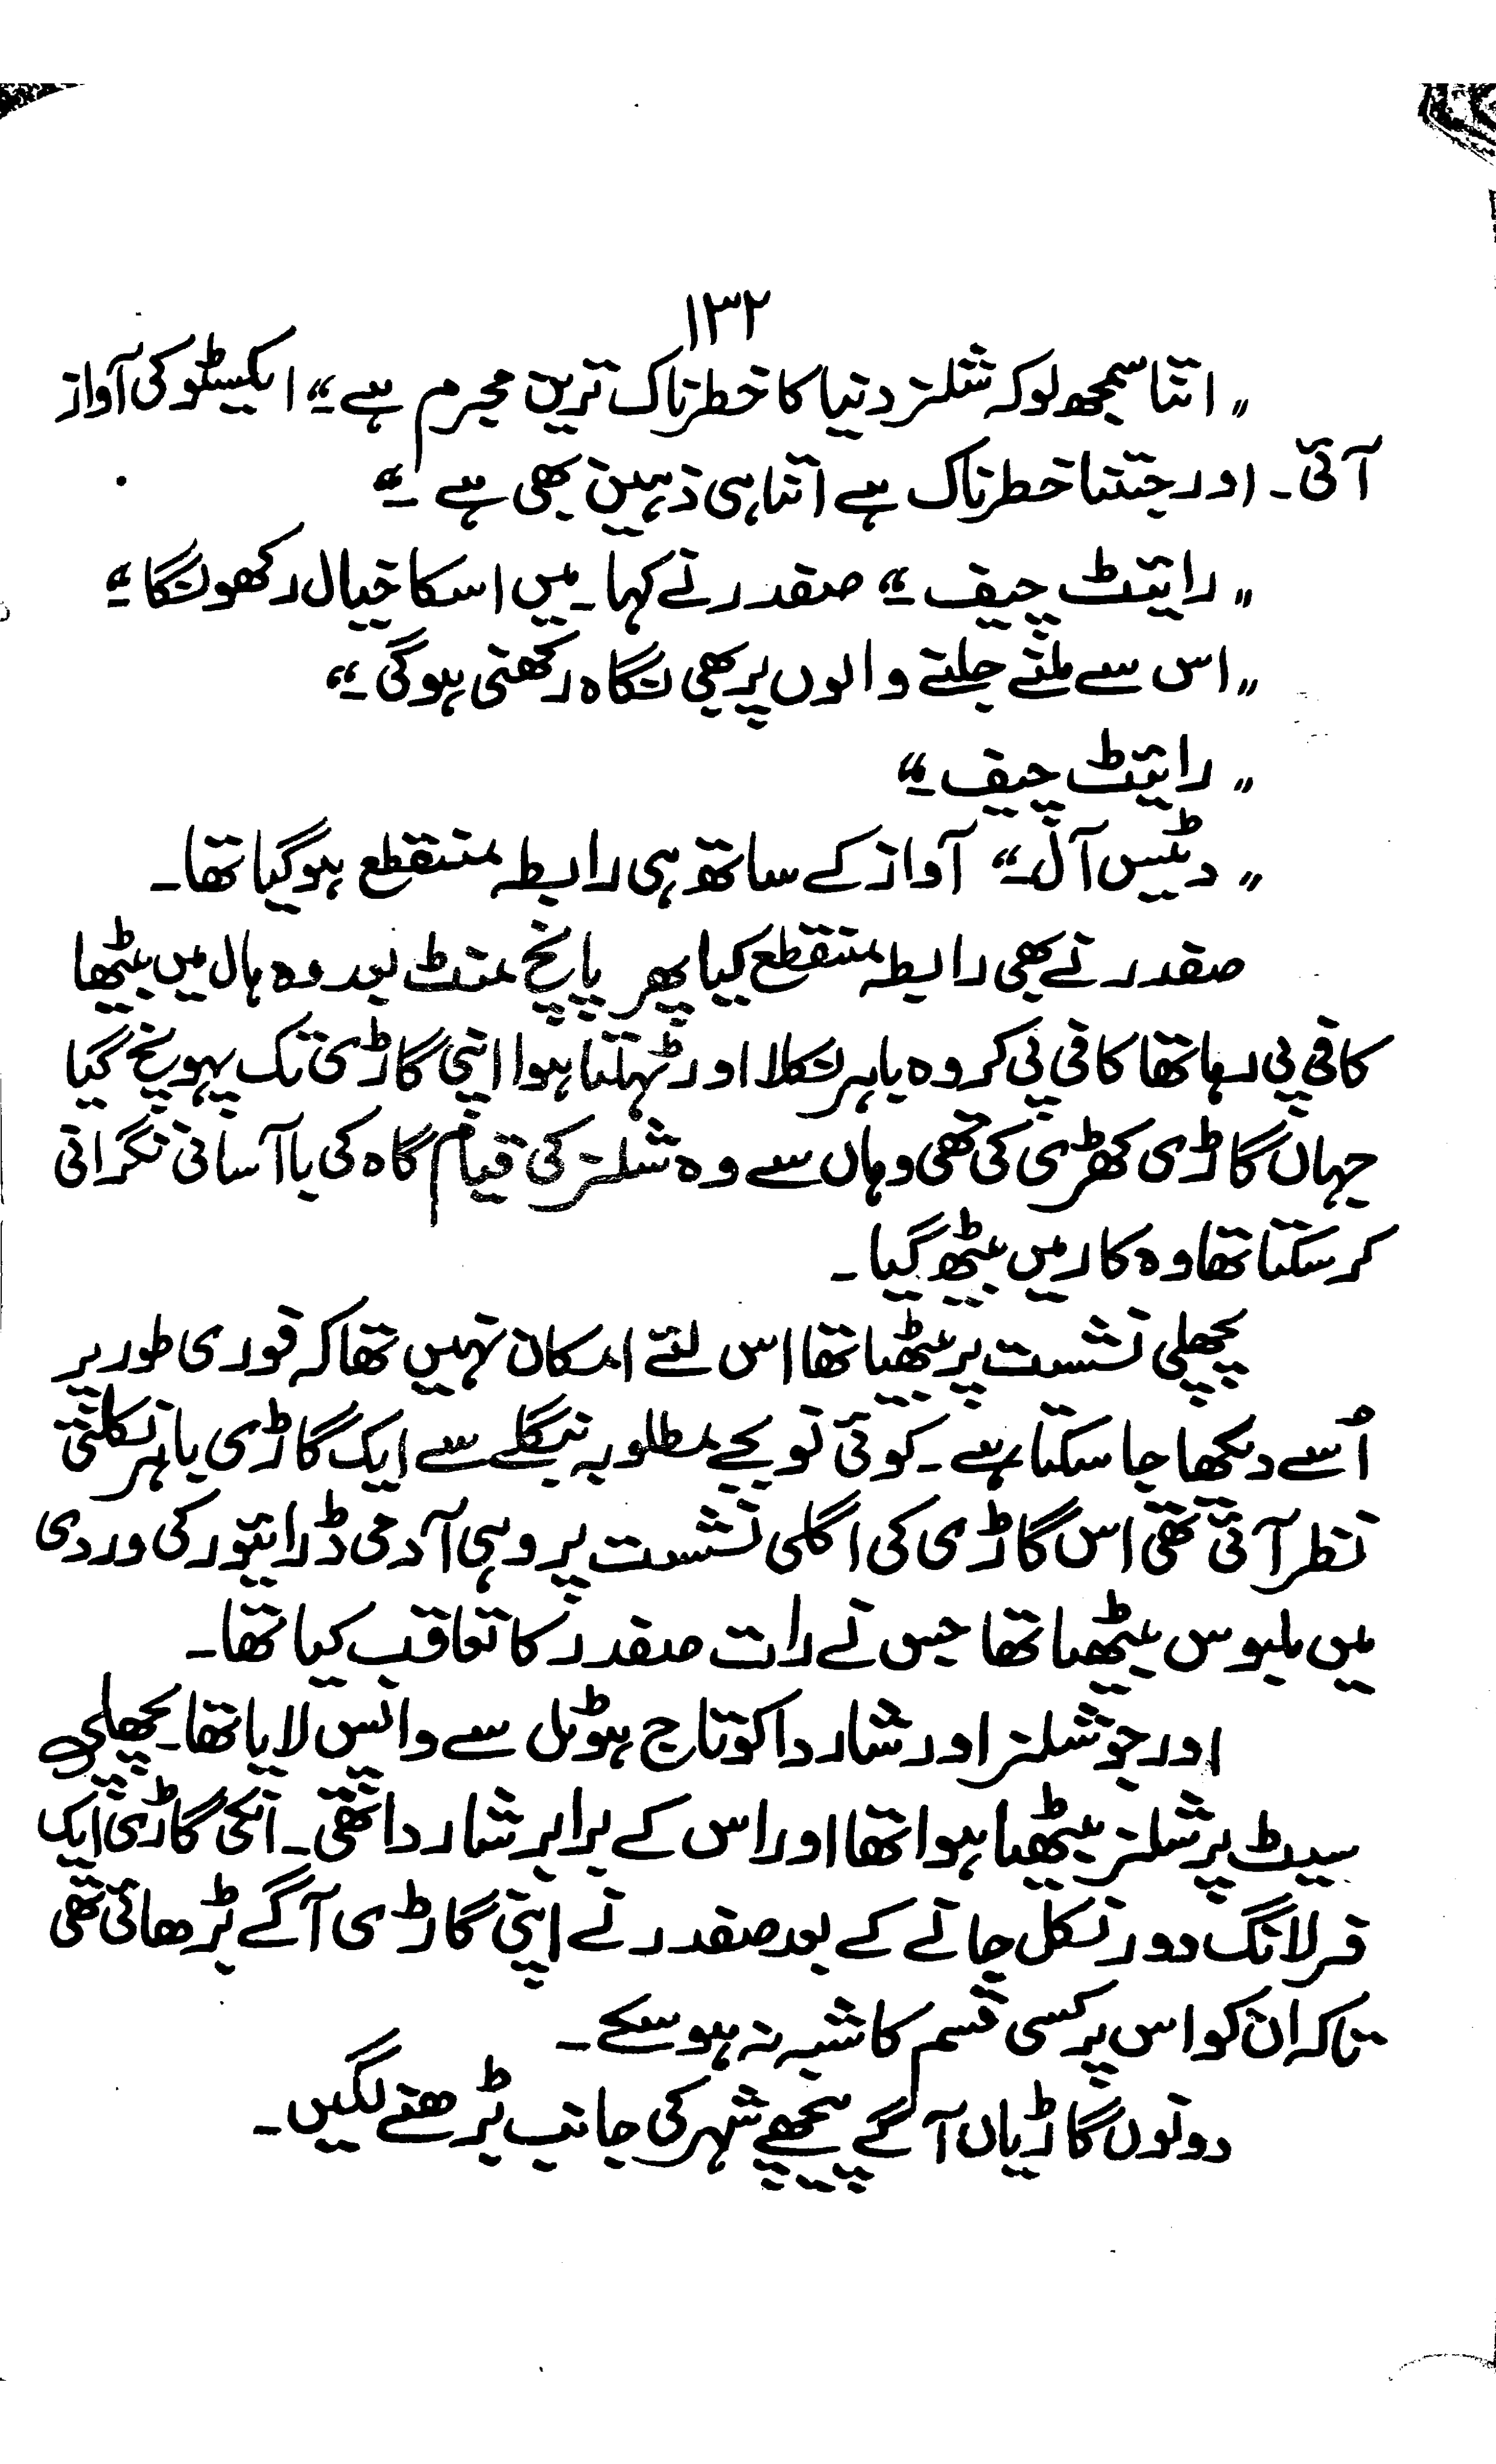 ۱۳۲
„ اتنا سمجھ لو کہ شلنر دنیا کا خطرناک ترین مجرم ہے ۔“ ایکسٹو کی آواز
آئی ۔ اور جتنا خطرناک ہے اتنا ہی ذہین بھی ہے ۔“
„ رائیٹ چیف ۔“ صفدر نے کہا ۔ میں اسکا خیال رکھونگا ۔“
„ اس سے ملنے جلنے والوں پر بھی نگاہ رکھنی ہوگی ۔“
„ رائیٹ چیف ۔“
„ دیٹس آل ۔“ آواز کے ساتھ ہی رابطہ منقطع ہو گیا تھا ۔
صفدر نے بھی رابطہ منقطع کیا پھر پانچ منٹ بعد وہ ہال میں بیٹھا
کافی پی رہا تھا کافی پی کر وہ باہر نکلا اور ٹہلتا ہوا اپنی گاڑی تک پہونچ گیا
جہاں گاڑی کھڑی کی تھی وہاں سے وہ شلنر کی قیام گاہ کی باآسانی نگرانی
کر سکتا تھا وہ کار میں بیٹھ گیا ۔
پچھلی نشست پر بیٹھا تھا اس لئے امکان نہیں تھا کہ فوری طور پر
اُسے دیکھا جا سکتا ہے ۔ کوئی نو بجے مطلوبہ بنگلے سے ایک گاڑی باہر نکلتی
نظر آئی تھی اس گاڑی کی اگلی نشست پر وہی آدمی ڈرائیور کی وردی
میں ملبوس بیٹھا تھا جس نے رات صفدر کا تعاقب کیا تھا ۔
اور جو شلنر اور شاردا کو تاج ہوٹل سے واپس لایا تھا ۔ پچھلی
سیٹ پر شلنر بیٹھا ہوا تھا اور اس کے برابر شاردا تھی ۔ انکی گاڑی ایک
فرلانگ دور نکل جانے کے بعد صفدر نے اپنی گاڑی آگے بڑھائی تھی
تاکہ ان کو اس پر کسی قسم کا شبہ نہ ہو سکے ۔
دونوں گاڑیاں آگے پیچھے شہر کی جانب بڑھنے لگیں ۔